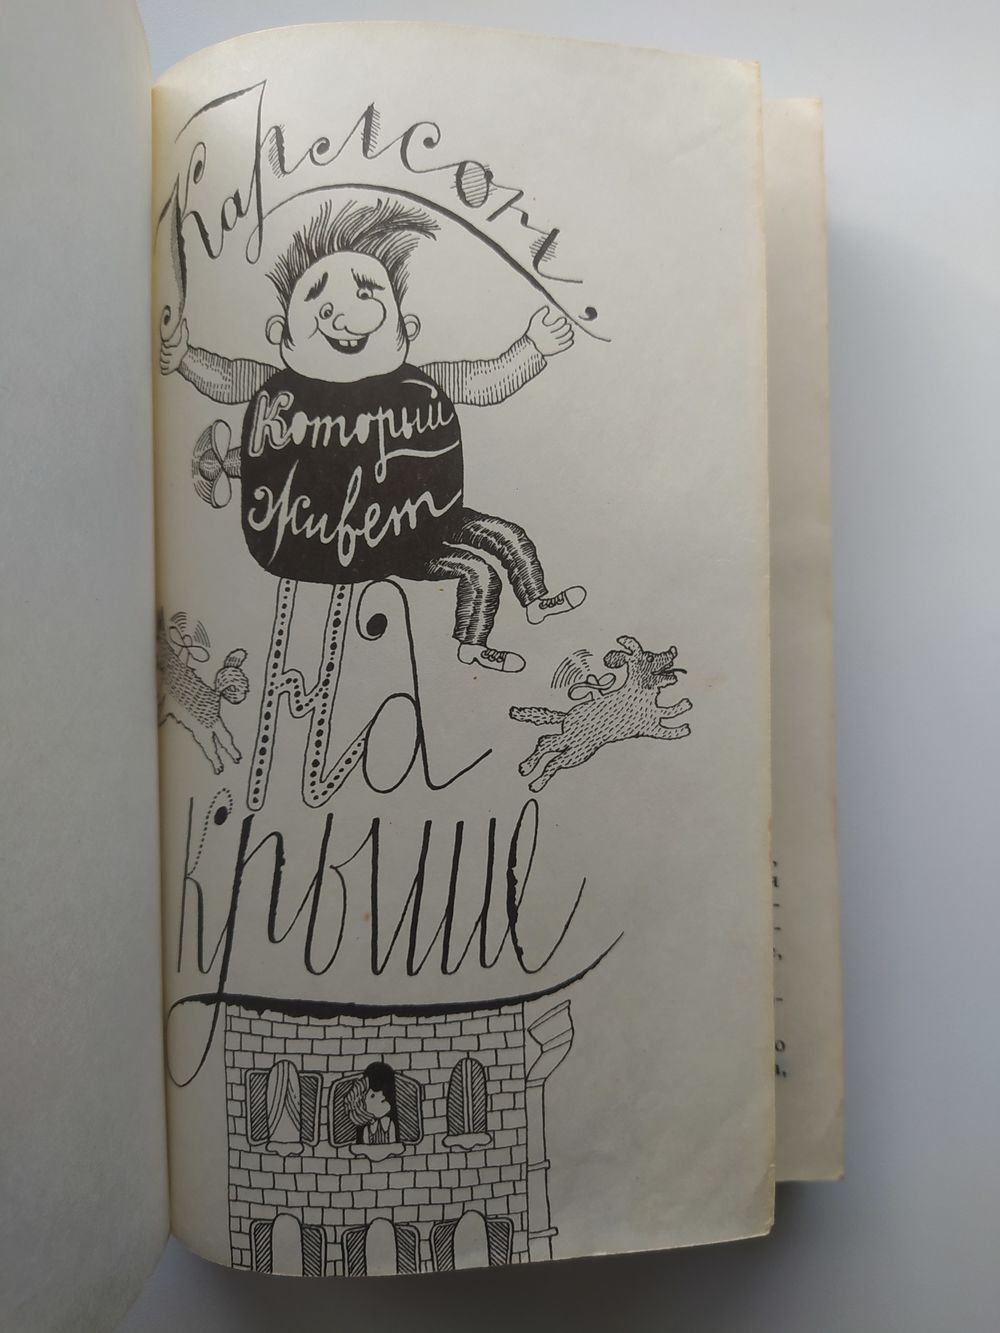 Карлсон,
Который
Живет
на
крыше